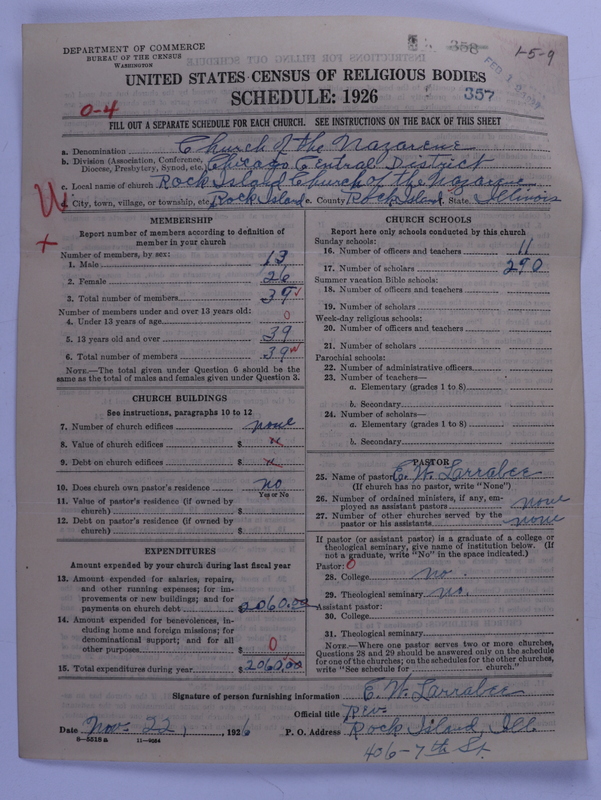 DEPARTMENT OF COMMERCE
BUREAU OF THE CENSUS
WASHINGTON
358
1-5-9
UNITED STATES CENSUS OF RELIGIOUS BODIES
SCHEDULE: 1926
357
0-4
FILL OUT A SEPARATE SCHEDULE FOR EACH CHURCH. SEE INSTRUCTIONS ON THE BACK OF THIS SHEET
a. Denomination Church of the Nazarene
b. Division (Association, Conference, Diocese, Presbytery, Synod, etc.) Chicago Central District
c. Local name of church Rock Island Church of the Nazarene
d. City, town, village, or township, etc. Rock Island e. County Rock Island State Illinois
U
+
MEMBERSHIP
Report number of members according to definition of
member in your church
Number of members, by sex:
1. Male 13
2. Female 26
3. Total number of members 39
Number of members under and over 13 years old:
4. Under 13 years of age 0
5. 13 years old and over 39
6. Total number of members 39
NOTE.—The total given under Question 6 should be the
same as the total of males and females given under Question 3.
CHURCH BUILDINGS
See instructions, paragraphs 10 to 12
7. Number of church edifices none
8. Value of church edifices $ x
9. Debt on church edifices $ x
10. Does church own pastor's residence? no
Yes or No
11. Value of pastor's residence (if owned by
church) $
12. Debt on pastor's residence (if owned by
church) $
EXPENDITURES
Amount expended by your church during last fiscal year
13. Amount expended for salaries, repairs,
and other running expenses; for im-
provements or new buildings; and for
payments on church debt $2060.00
14. Amount expended for benevolences, in-
cluding home and foreign missions; for
denominational support; and for all
other purposes $ 0
15. Total expenditures during year $2060.00
CHURCH SCHOOLS
Report here only schools conducted by this church
Sunday schools:
16. Number of officers and teachers 11
17. Number of scholars 290
Summer vacation Bible schools:
18. Number of officers and teachers
19. Number of scholars
Week-day religious schools:
20. Number of officers and teachers
21. Number of scholars
Parochial schools:
22. Number of administrative officers
23. Number of teachers—
a. Elementary (grades 1 to 8)
b. Secondary
24. Number of scholars—
a. Elementary (grades 1 to 8)
b. Secondary
PASTOR
25. Name of pastor E. W. Larrabee
(If church has no pastor, write "None")
26. Number of ordained ministers, if any, em-
ployed as assistant pastors none
27. Number of other churches served by the
pastor or his assistants none
If pastor (or assistant pastor) is a graduate of a college or
theological seminary, give name of institution below. (If
not a graduate, write "No" in the space indicated.)
Pastor: 0
28. College no.
29. Theological seminary no.
Assistant pastor:
30. College
31. Theological seminary
NOTE.—Where one pastor serves two or more churches,
Questions 28 and 29 should be answered only on the schedule
for one of the churches; on the schedules for the other churches,
write "See schedule for church."
Signature of person furnishing information E. W. Larrabee
Official title Rev.
Date Nov. 22, 1926 P. O. Address Rock Island, Ill
8-5518 a 11-9024
406-7th St.